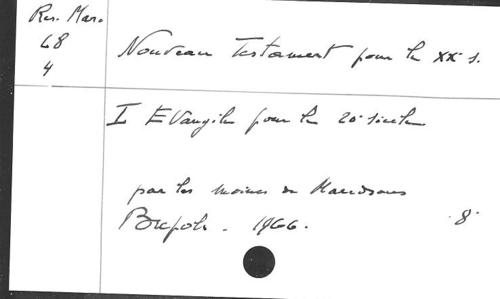 Res. Mar.
68
4
Nouveau Testament pour le XXe s.
I Evangiles pour le 20e siècle
par les moines de Maredsous
Brepols. 1966.
8°